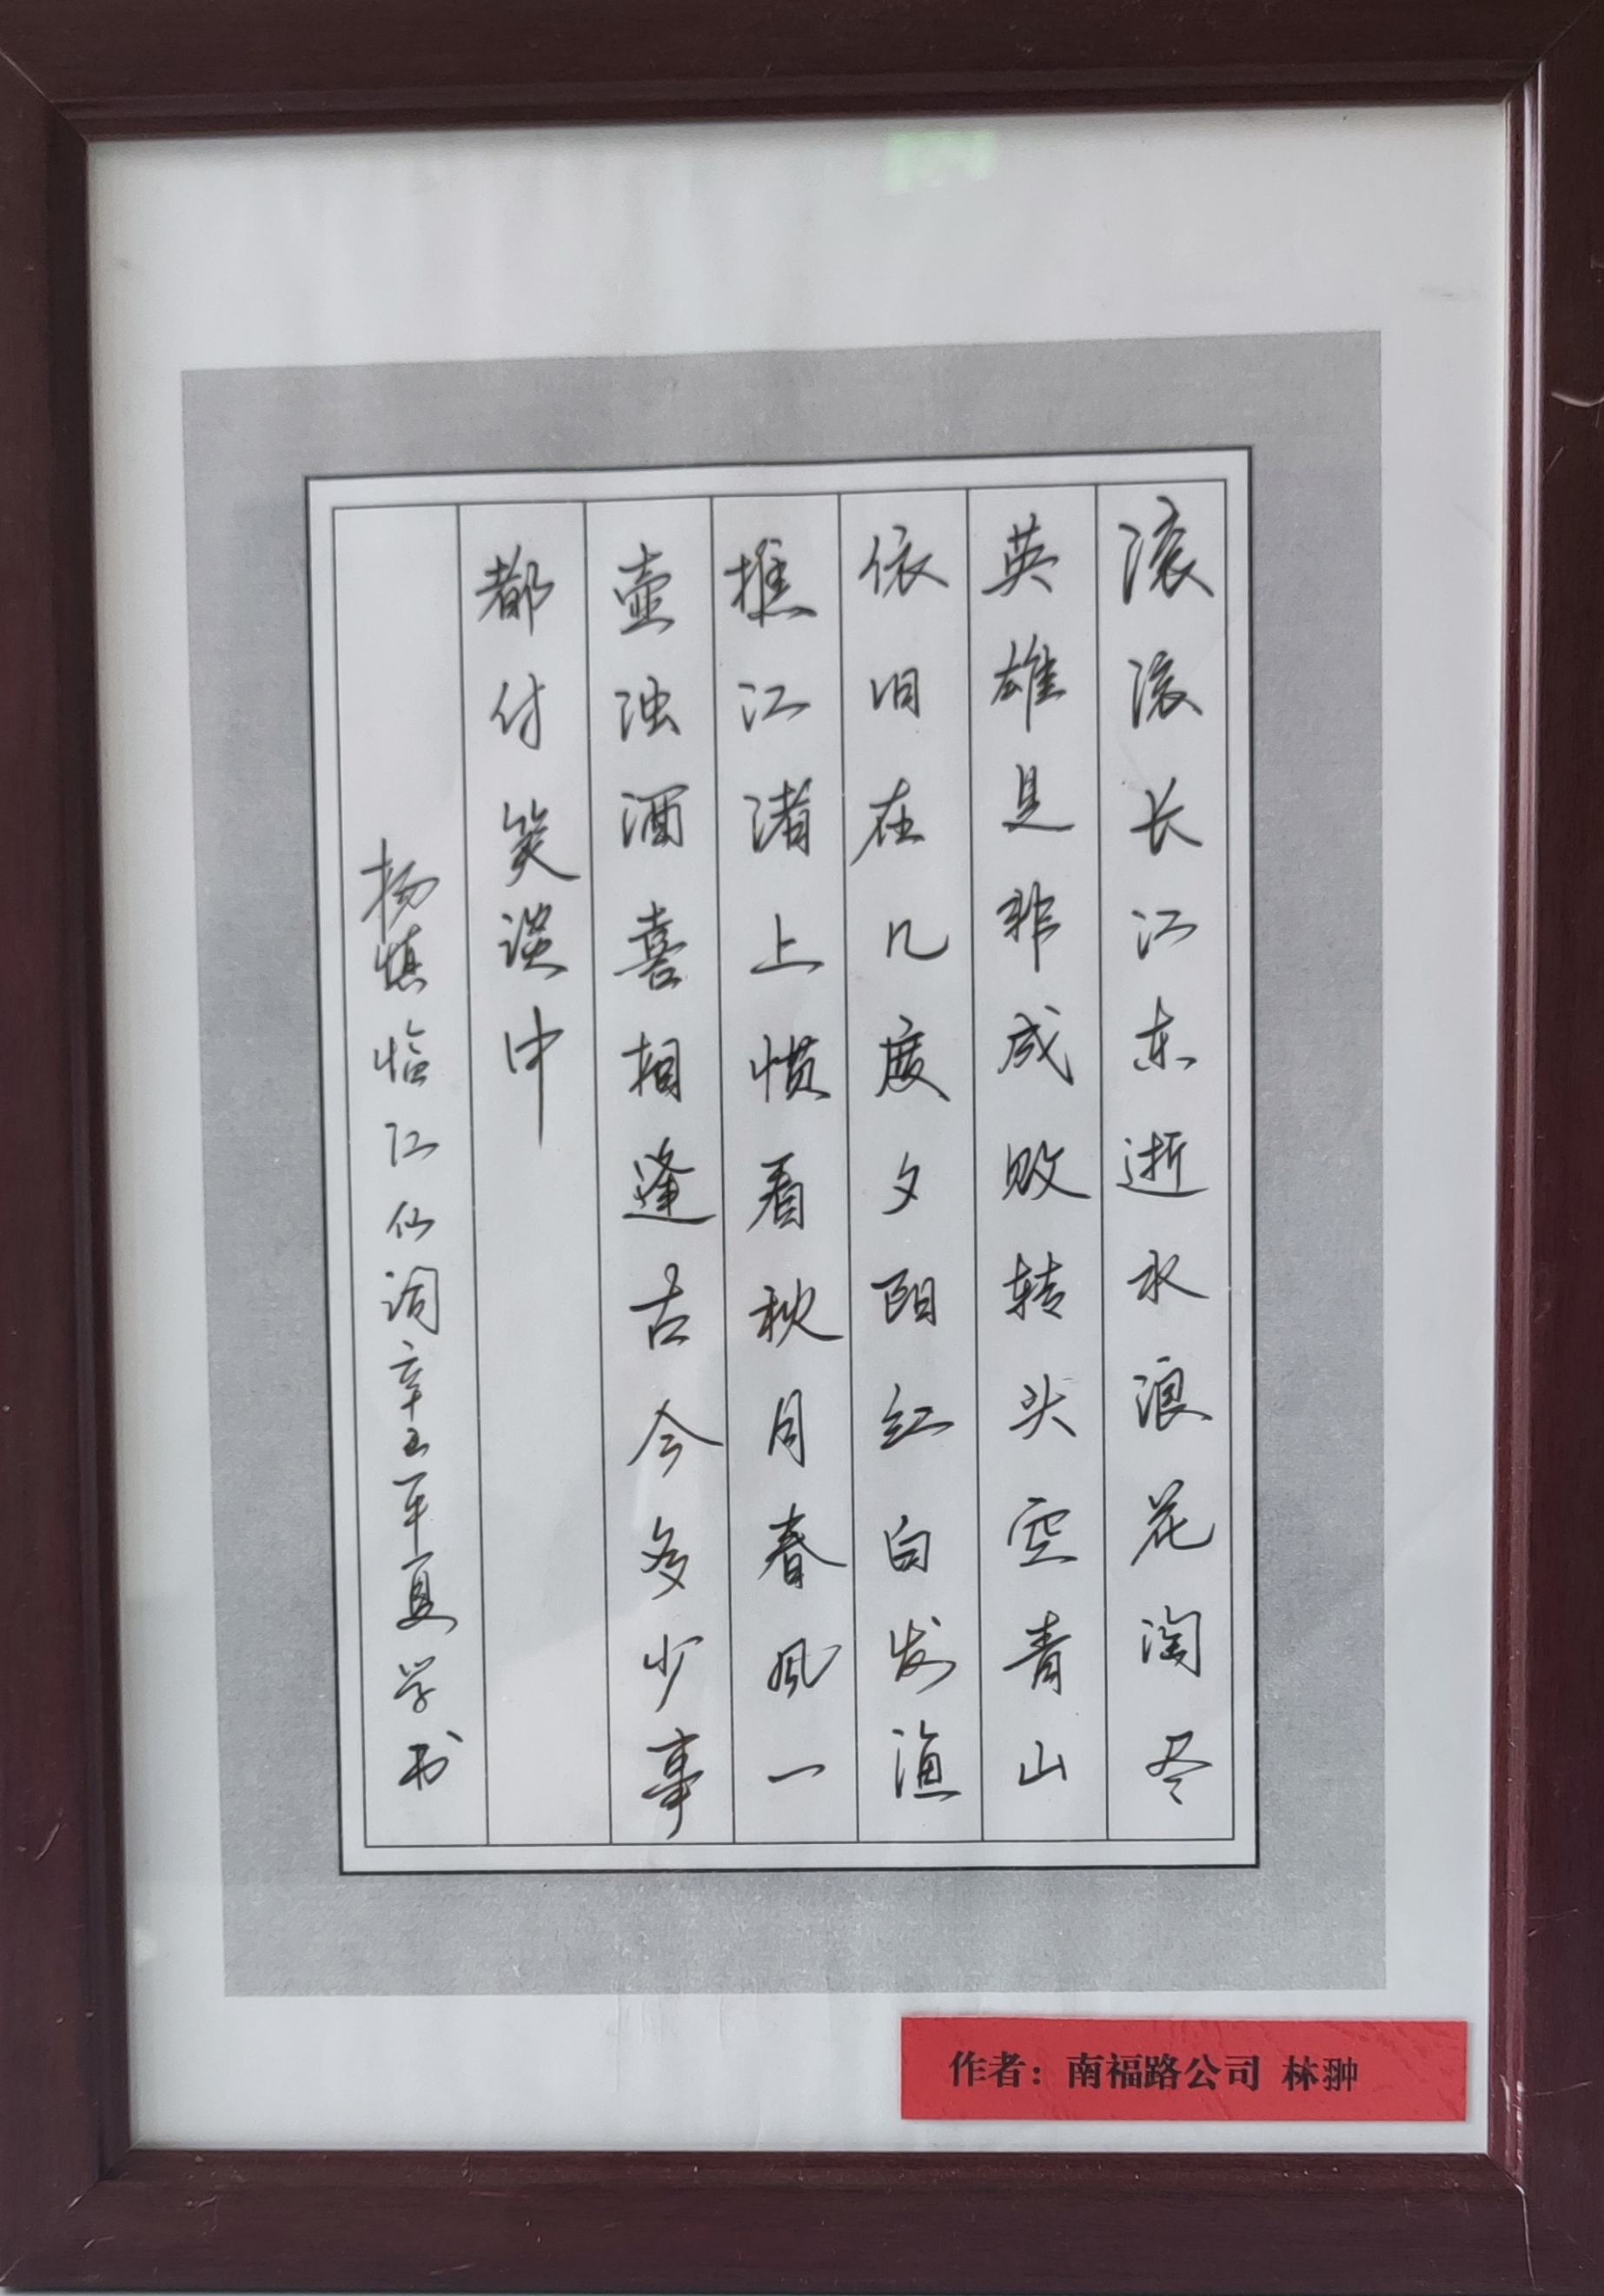 滚滚长江东逝水浪花淘尽
英雄是非成败转头空青山
依旧在几度夕阳红白发渔
樵江渚上惯看秋月春风一
壶浊酒喜相逢古今多少事
都付笑谈中
杨慎临江仙词辛丑年夏学书
作者：南福路公司 林翀